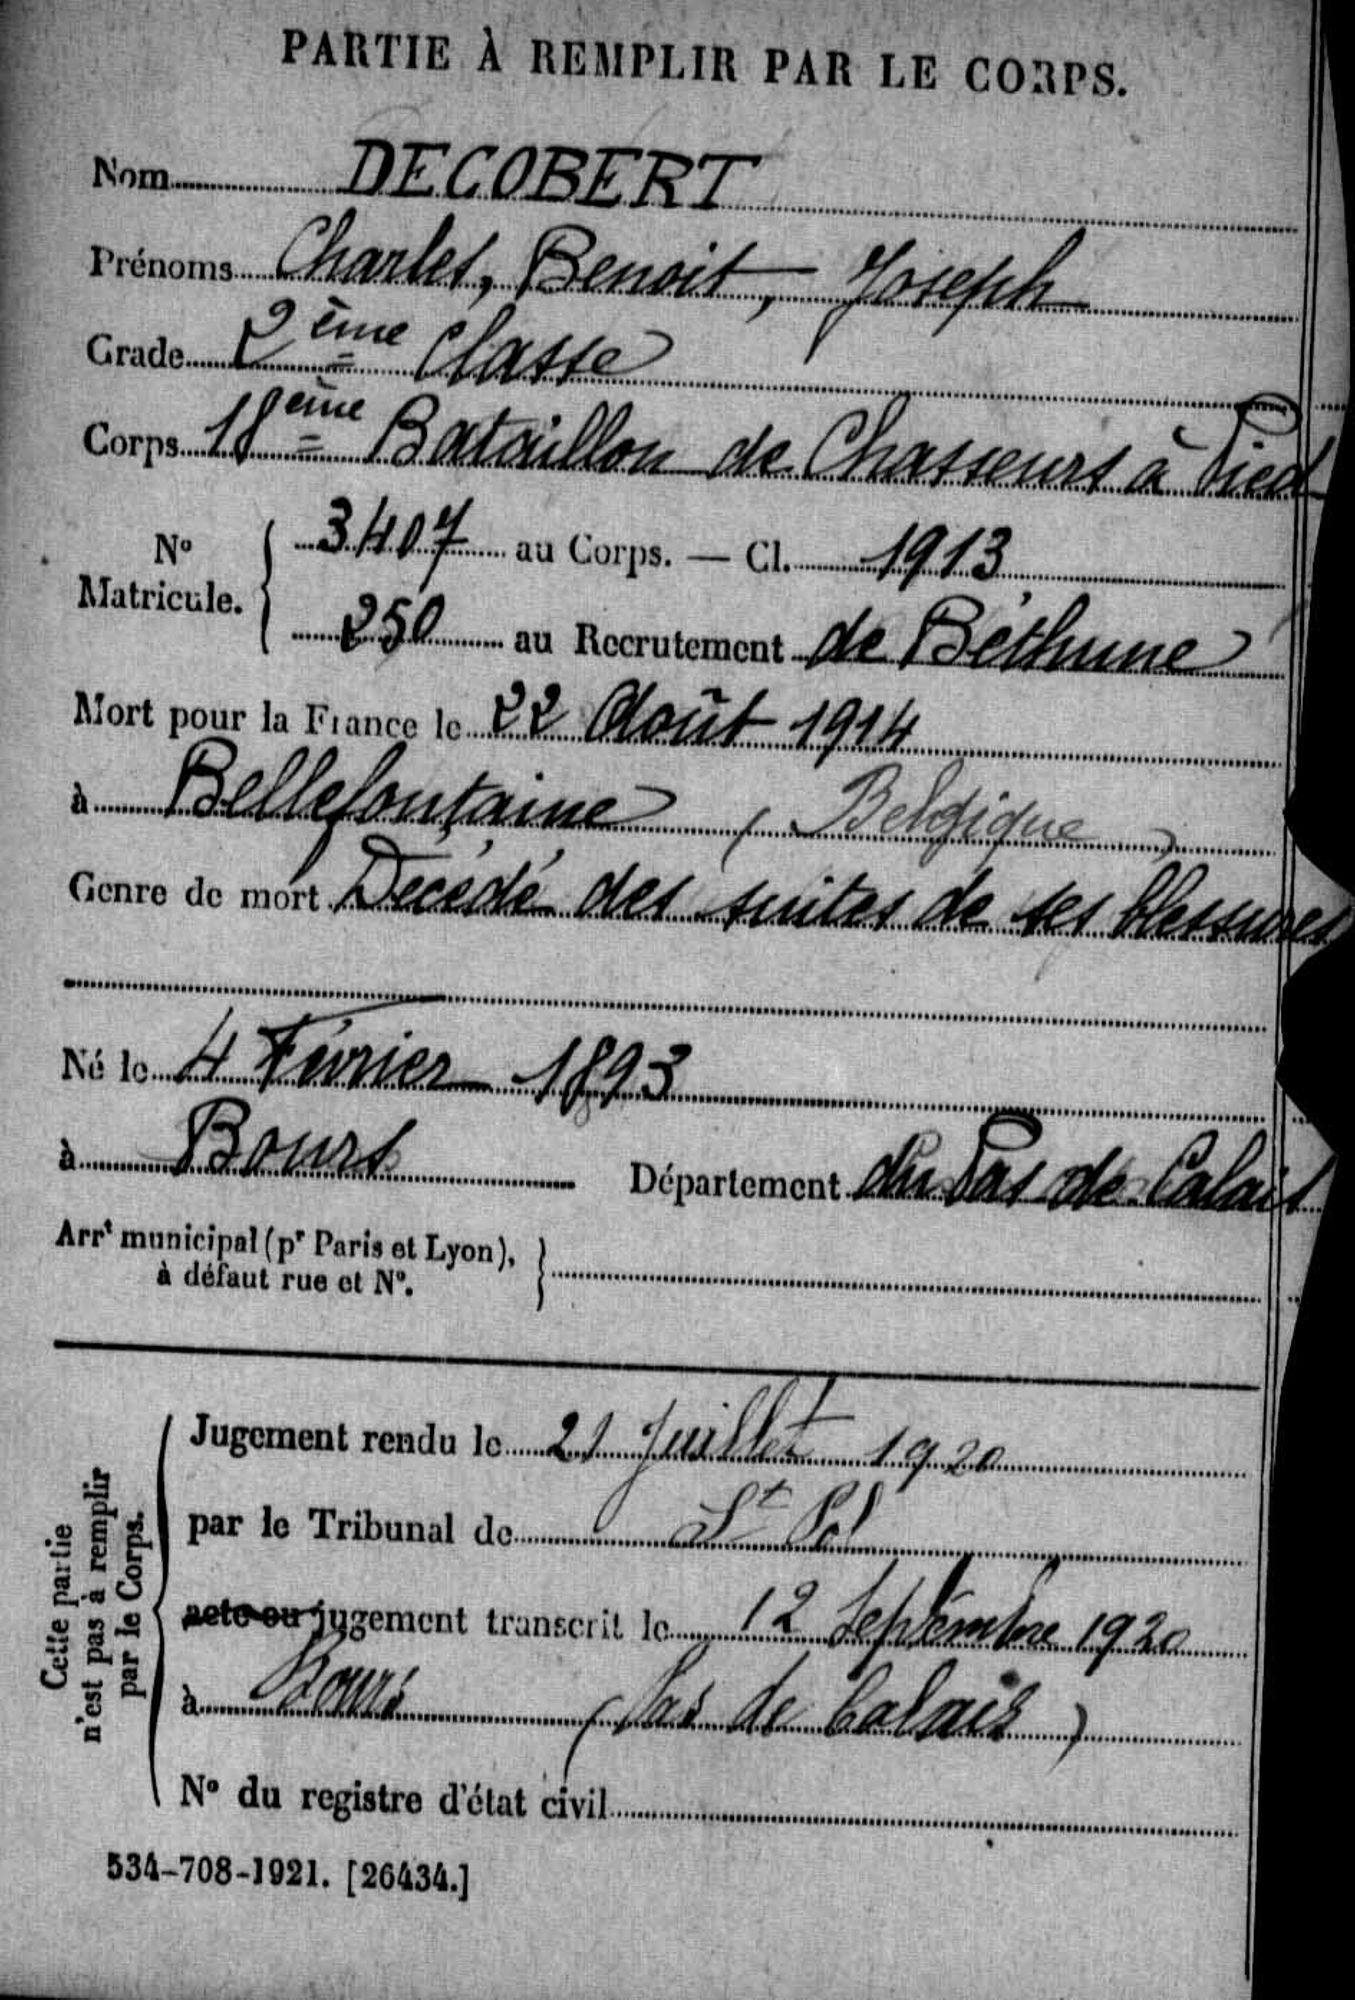 PARTIE À REMPLIR PAR LE CORPS.
Nom DECOBERT
Prénoms Charles, Benoit, Joseph
Grade 2ème Classe
Corps 18ème Bataillon de Chasseurs à Pied
No Matricule. 3407 au Corps. — Cl. 1913
250 au Recrutement de Béthune
Mort pour la France le 22 Août 1914
à Bellefontaine (Belgique)
Genre de mort Décédé des suites de ses blessures
Né le 4 Février 1893
à Bours Département du Pas de Calais
Arrt municipal (pr Paris et Lyon),
à défaut rue et No.
Cette partie
n'est pas à remplir
par le Corps.
Jugement rendu le 21 Juillet 1920
par le Tribunal de St Pol
acte ou jugement transcrit le 12 Septembre 1920
à Bours (Pas de Calais)
No du registre d'état civil
534-708-1921. [26434.]